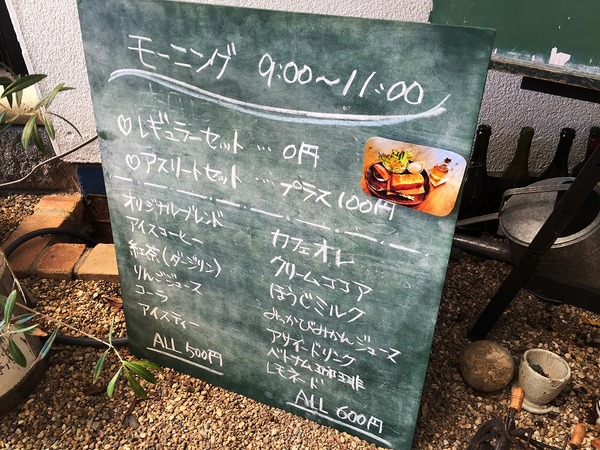 モーニング 9:00〜11:00
♡レギュラーセット … 0円
♡アスリートセット … プラス100円
オリジナルブレンド
アイスコーヒー
紅茶(ダージリン)
りんごジュース
コーラ
アイスティー
ALL 500円
カフェオレ
クリームココア
ほうじミルク
みっかびみかんジュース
アサイードリンク
ベトナム珈琲
レモネード
ALL 600円